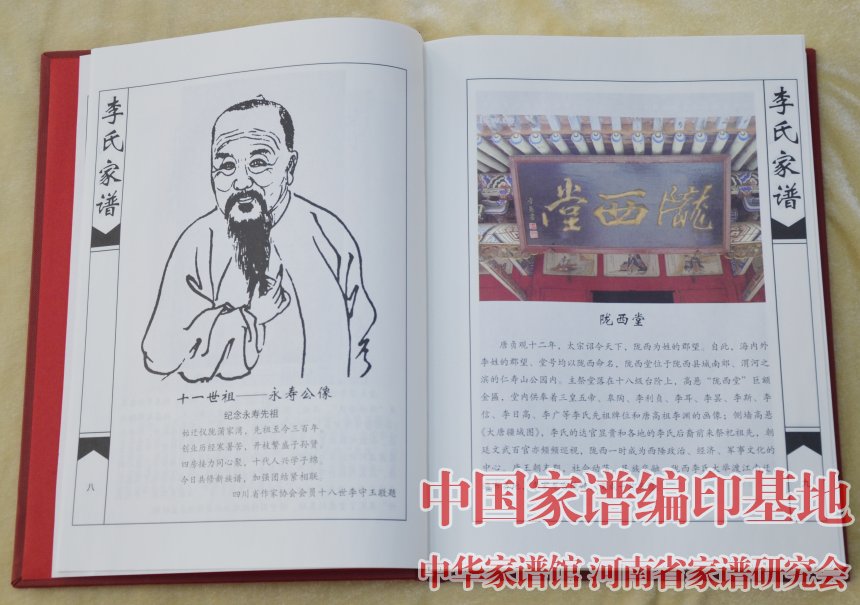 李氏家谱
十一世祖——永寿公像
纪念永寿先祖
始迁仪陇萧家湾，先祖至今三百年。
创业历经寒暑苦，开枝繁盛子孙贤
四房接力同心聚，十代人兴学子绵。
今日共修新族谱，加强团结紧相联。
四川省作家协会会员十八世李守王敬题
八
李氏家谱
陇西堂
陇西堂
唐贞观十二年，太宗诏令天下，陇西为姓的郡望。自此，海内外
李姓的郡望、堂号均以陇西命名。陇西堂位于陇西县城南郊、渭河之
滨的仁寿山公园内。主祭堂落在十八级台阶上，高悬“陇西堂”巨额
金匾，堂内供奉着三皇五帝、皋陶、李利贞、李耳、李昙、李斯、李
信、李日高、李广等李氏先祖牌位和唐高祖李渊的画像；侧墙高悬
《大唐疆域图》，李氏的达官显贵和各地的李氏后裔前来祭祀祖先，朝
廷文武百官亦频频巡视，陇西一时成为西陲政治、经济、军事文化的
中心。唐王朝
中国家谱编印基地
中华家谱馆 河南省家谱研究会